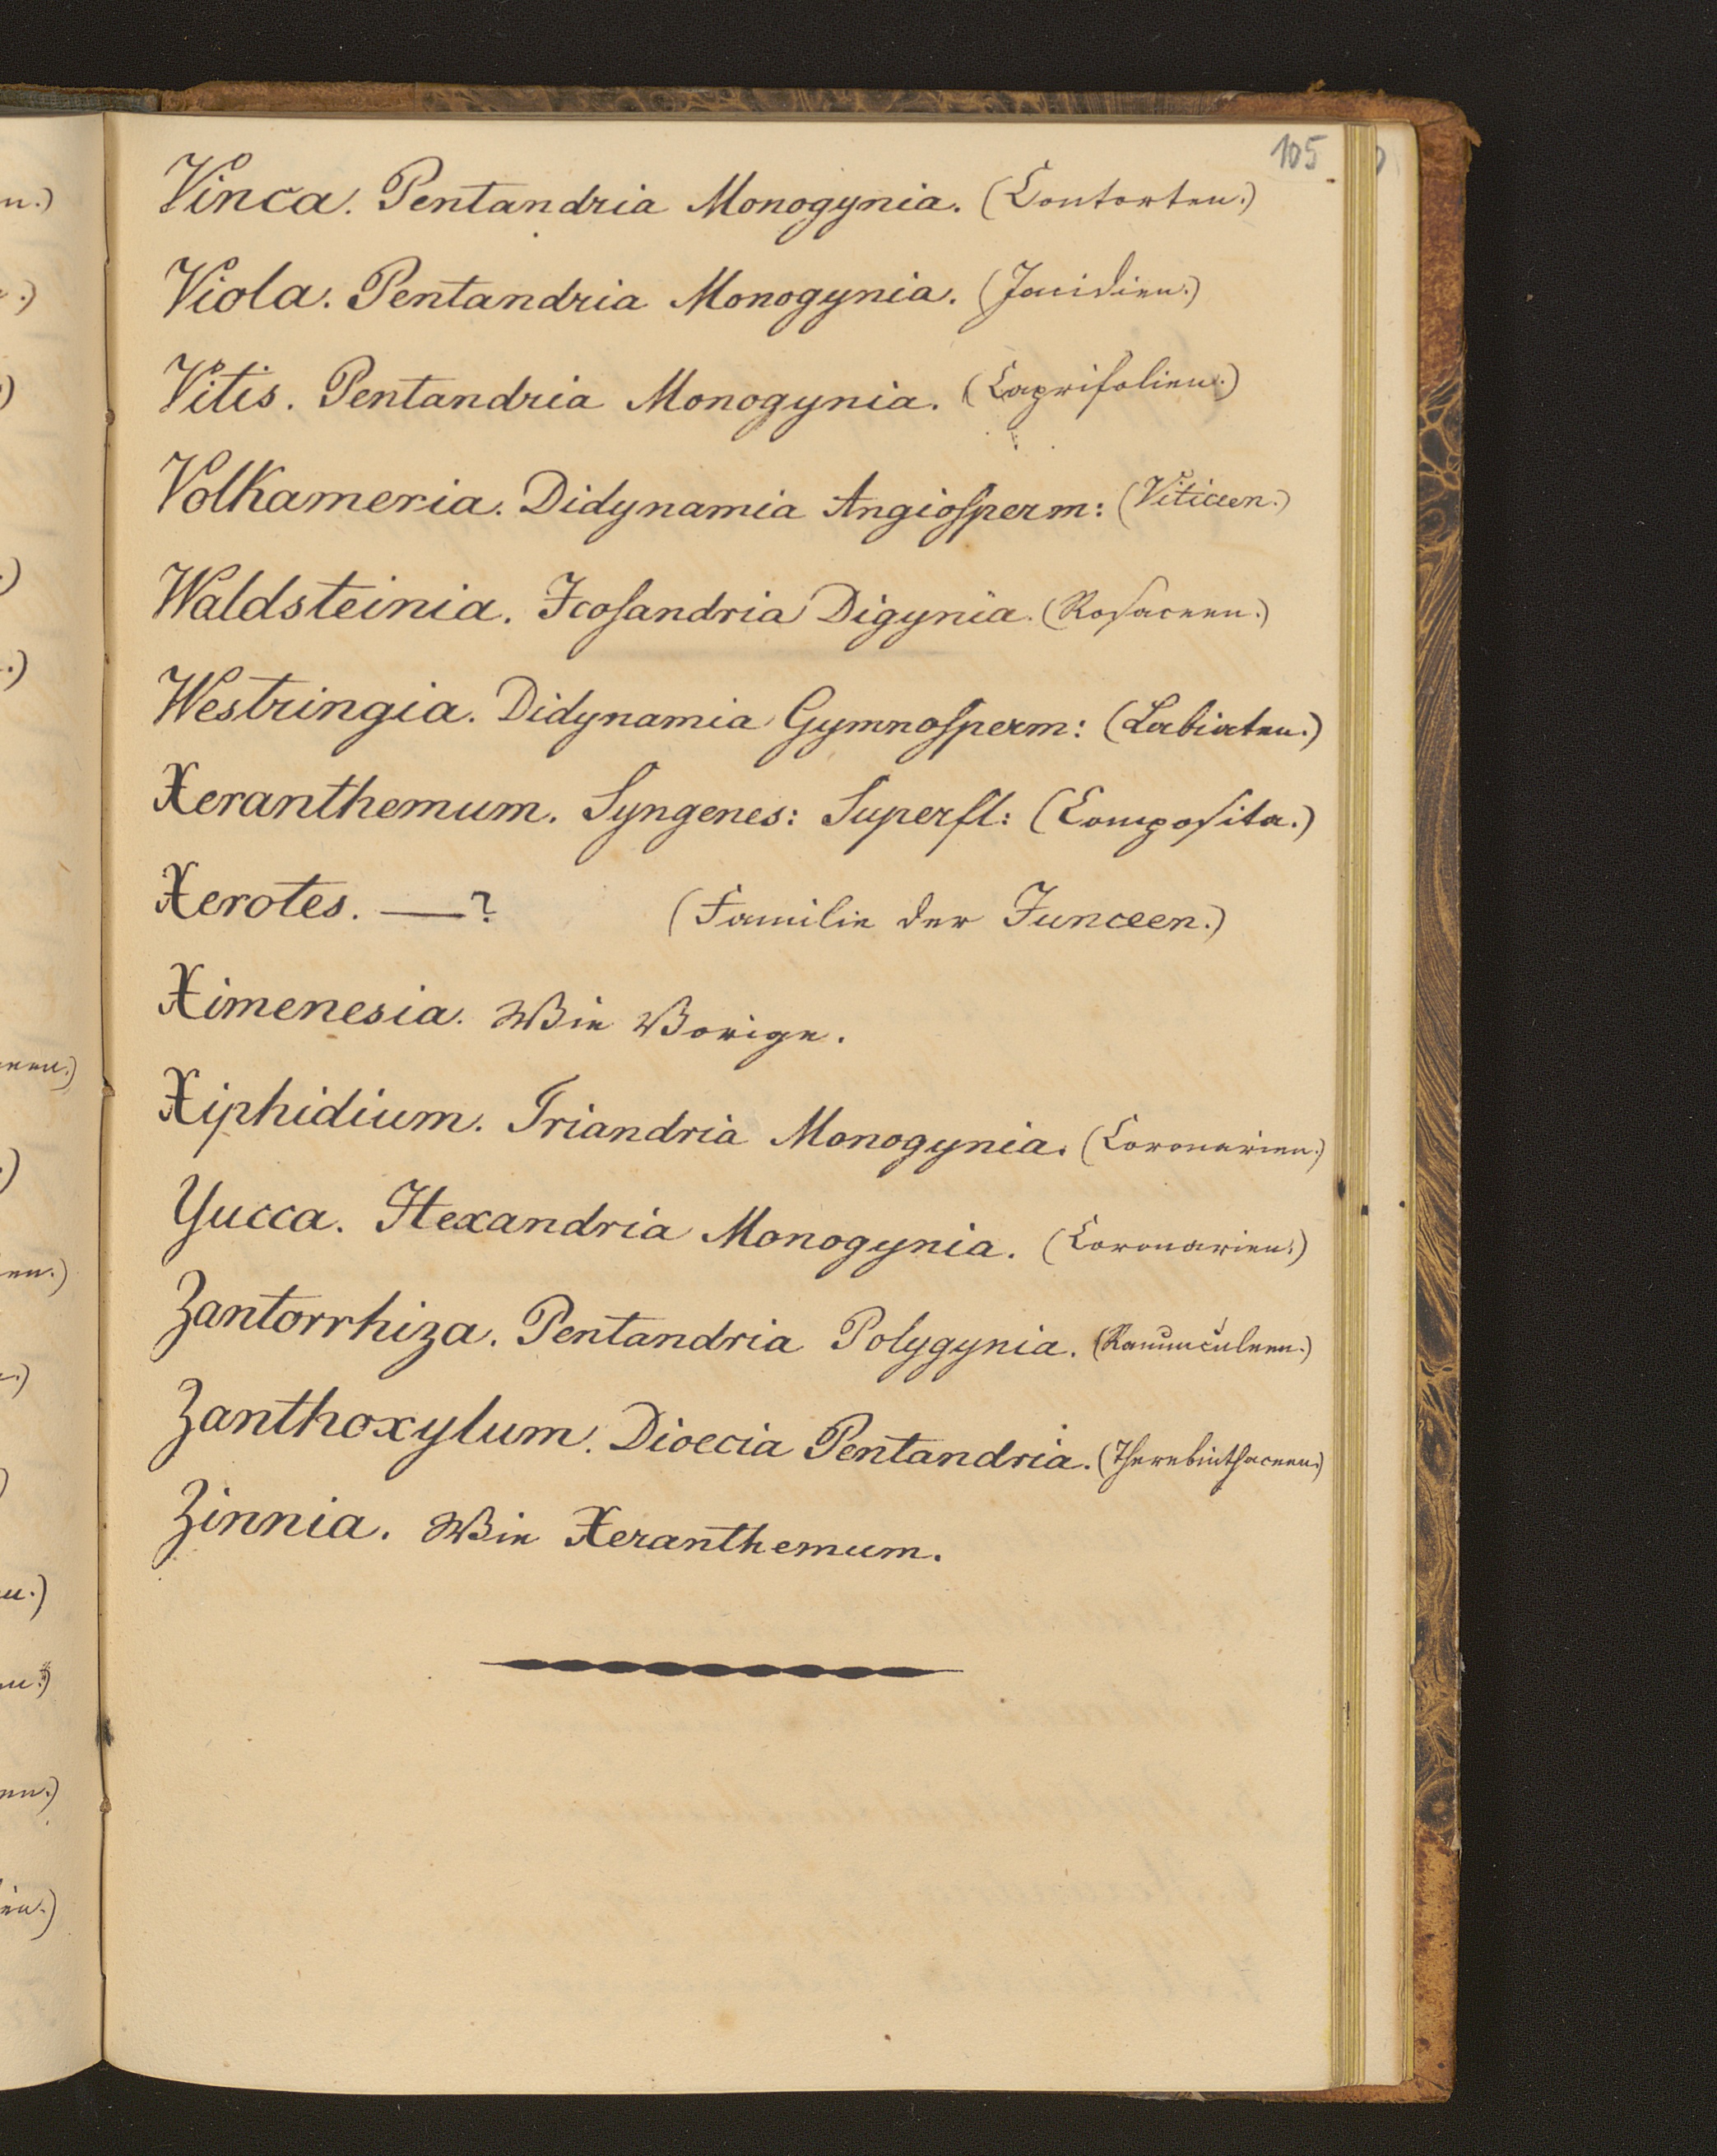 105.
Vinca. Pentandria Monogynia. (Contorten.)
Viola. Pentandria Monogynia. (Jonidien.)
Vitis. Pentandria Monogynia. (Caprifolien.)
Volkameria. Didynamia Angiosperm: (Viticeen.)
Waldsteinia. Icosandria Digynia. (Rosaceen.)
Westringia. Didynamia Gymnosperm: (Labiaten.)
Xeranthemum. Syngenes: Superfl: (Composita.)
Xerotes. —? (Familie der Junceen.)
Ximenesia. Wie Vorige.
Xiphidium. Triandria Monogynia. (Coronarien.)
Yucca. Hexandria Monogynia. (Coronarien.)
Zantorrhiza. Pentandria Polygynia. (Ranunculeen.)
Zanthoxylum. Dioecia Pentandria. (Therebinthaceen.)
Zinnia. Wie Xeranthemum.